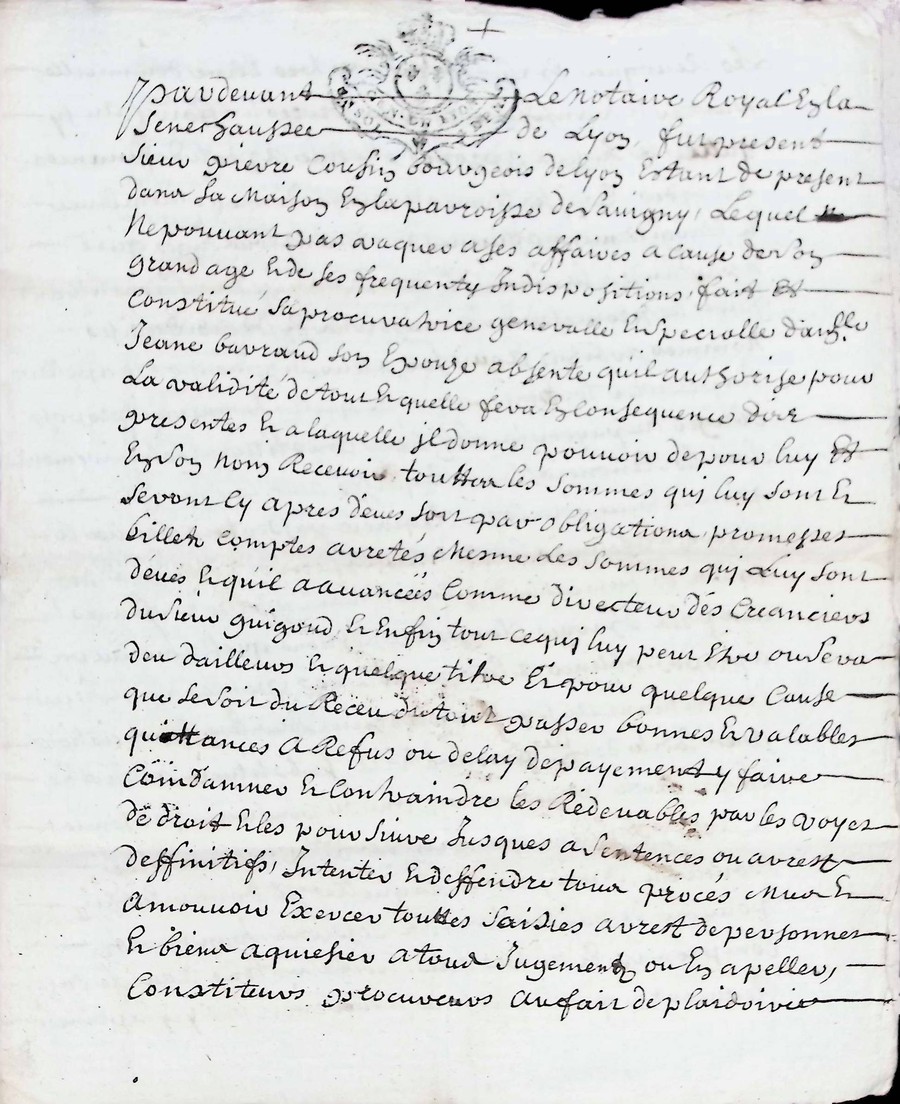 pardevant Le notaire Royal En la
Senechaussee de Lyon, fut present
Sieur pierre Cousin bourgeois de lyon Estant de present
dans Sa Maison En la parroisse de Savigny, Lequel
Ne pouvant pas vaquer a ses affaires a Cause de Son
grand age Et de ses frequents Indispositions, fait Et
Constitué Sa procuratrice generalle Et Specialle dam.lle
Jeane barraud Son Epouze absente quil authorise pour
La validité de tout Et quelle fera En Consequence dies
presentes Et a laquelle jl donne pouvoir de pour luy Et
En Son Nom Recevoir touttes les Sommes quj luy Sont Et
Seront Cy apres dëues Soit par obligations, promesses
billets Comptes arretés Mesme Les Sommes quj Luy Sont
dëues Et quil a avancëés Comme directeur dés Creanciers
du Sieur guigond, Et Enfin tout ce quj luy peut Etre ou Sera
deu dailleurs Et quelque titre Et pour quelque Cause
que Se Soit du Receu du tout passer bonnes Et valables
quittances a Refus ou delay de payements y faire
Condamner Et Contraindre les Rédevables par les voyes
de droit Et les pour Siuve Jusques a Sentences ou arrests
deffinitifs, Intenter Et deffendre tous procés Mus Et
a mouvoir Exercer touttes Saisies arrest de personnes
Et biens aquiesser a tous Jugements ou En apeller,
Constituers procureurs au fait de plaidoirie